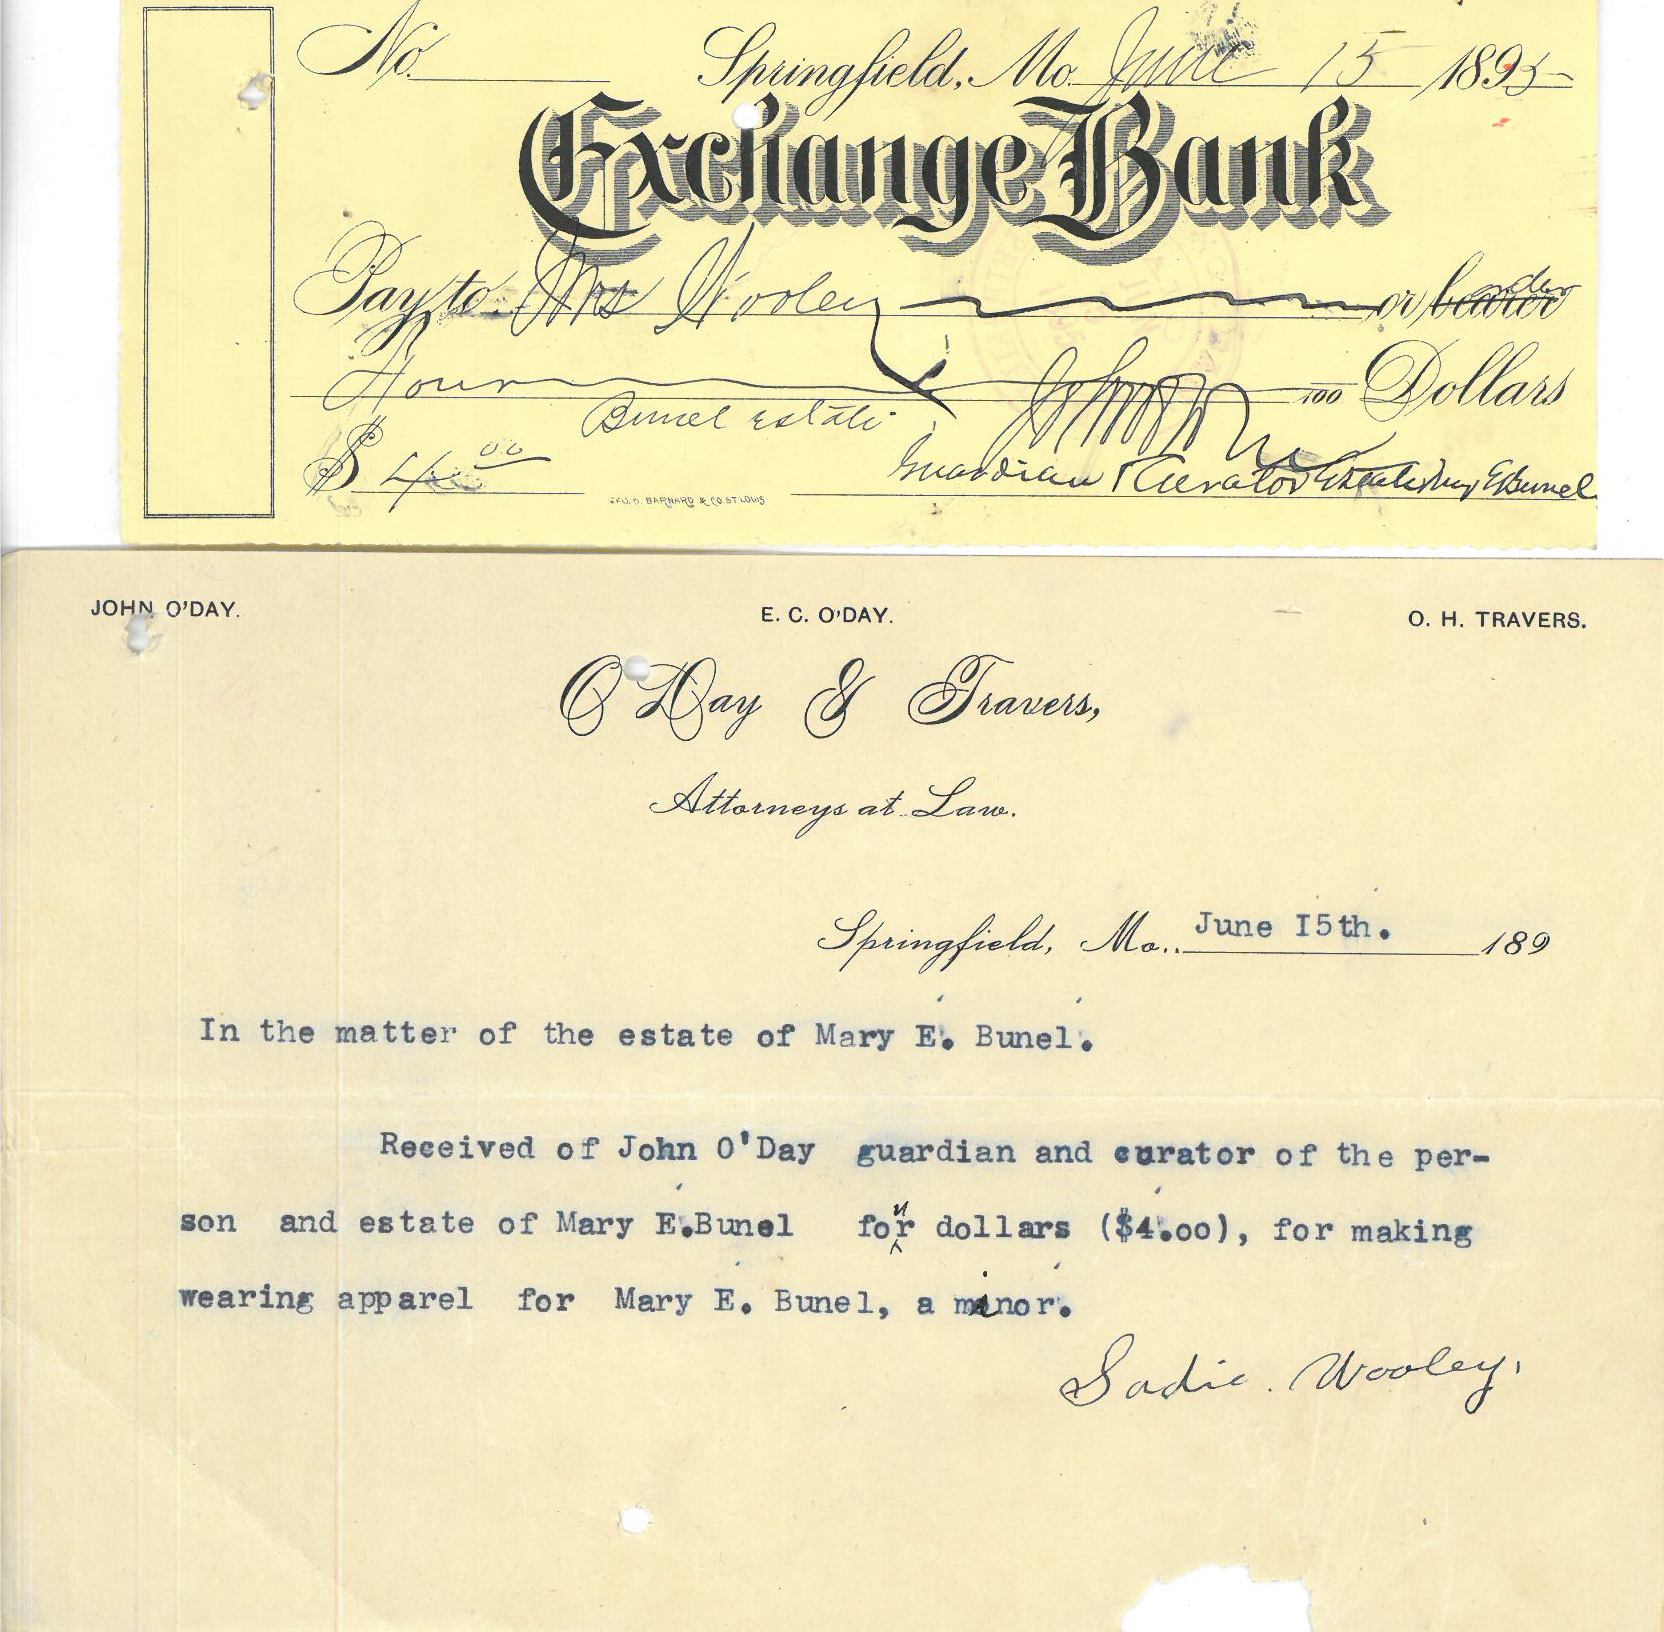 No. Springfield, Mo. June 15 1895
Exchange Bank
Pay to Mrs Wooley or bearer order
Four 100 Dollars
Bunel Estate
$ 4 00
Guardian & Curator Estate Mary E Bunel
GEO. D. BARNARD & CO. ST. LOUIS
JOHN O'DAY. E. C. O'DAY. O. H. TRAVERS.
O'Day & Travers,
Attorneys at Law.
Springfield, Mo. June I5th. 189
In the matter of the estate of Mary E. Bunel.
Received of John O'Day guardian and curator of the per-
son and estate of Mary E.Bunel four dollars ($4.oo), for making
wearing apparel for Mary E. Bunel, a minor.
Sadie. Wooley.